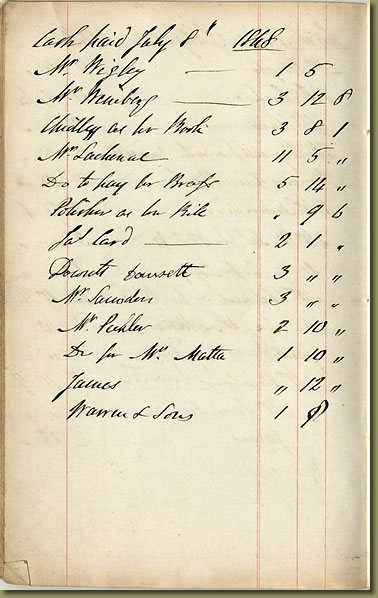 Cash paid July 8th 1848
Mr Wigley — 1 5
Mr Weinberg — 3 12 8
Chidley as per Book 3 8 1
Mr Lachenal 11 5 "
Do to pay for Brass 5 14 "
Polisher as per Bill " 9 6
Card — 2 1 "
Dowsett dowsett 3 " "
Mr Saunders 3 " "
Mr 2 10 "
Do for Mrs Matta 1 10 "
James " 12 "
Warren & Sons 1